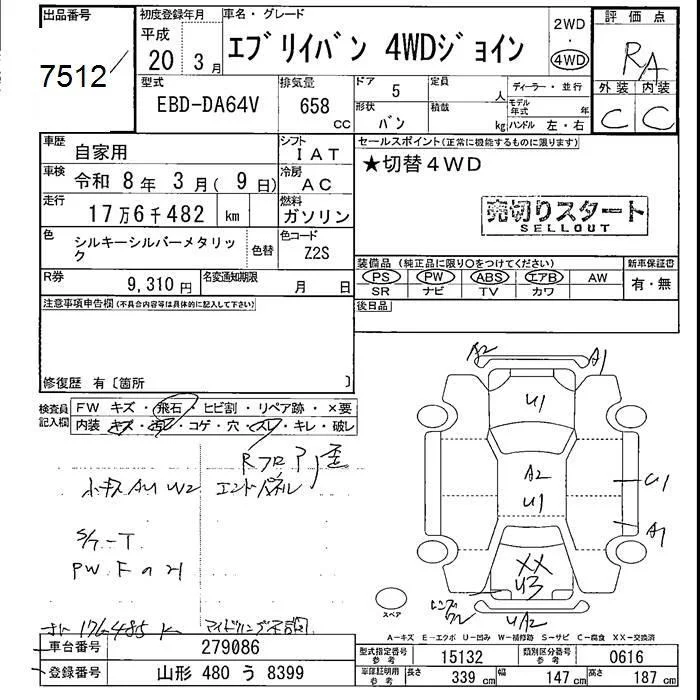 出品番号
7512
初度登録年月
平成
20 3月
車名・グレード
エブリイバン 4WDジョイン
2WD
・
4WD
評価点
RA
外装 内装
C C
型式
EBD-DA64V
排気量
658
cc
ドア
5
定員
人
形状
バン
積載
kg
ディーラー・並行
モデル年式 年
ハンドル 左・右
車歴
自家用
シフト
IAT
車検
令和 8年 3月(9日)
冷房
AC
走行
17万6千482 km
燃料
ガソリン
色
シルキーシルバーメタリック
色替
色コード
Z2S
R券
9,310円
名変通知期限
月 日
セールスポイント(正常に機能するものに限ります)
★切替4WD
売切りスタート
SELLOUT
装備品(純正品に限り○をつけてください)
新車保証書
PS PW ABS エアB AW
有・無
SR ナビ TV カワ
後日品
注意事項申告欄(不具合内容等は具体的に記入して下さい)
修復歴 有〔箇所 〕
検査員記入欄
FW キズ・飛石・ヒビ割・リペア跡・×要
内装 キズ・汚レ・コゲ・穴・スレ・キレ・破レ
エンドパネル
S/T-T
A2
A1
U1
A2
U1
U1
A1
XX
U3
UA2
スペア
176485 K
A-キズ E-エクボ U-凹み W-補修跡 S-サビ C-腐食 XX-交換済
車台番号
279086
登録番号
山形 480 う 8399
型式指定番号
参考
15132
類別区分番号
参考
0616
車庫証明用
参考
長さ
339 cm
幅
147 cm
高さ
187 cm